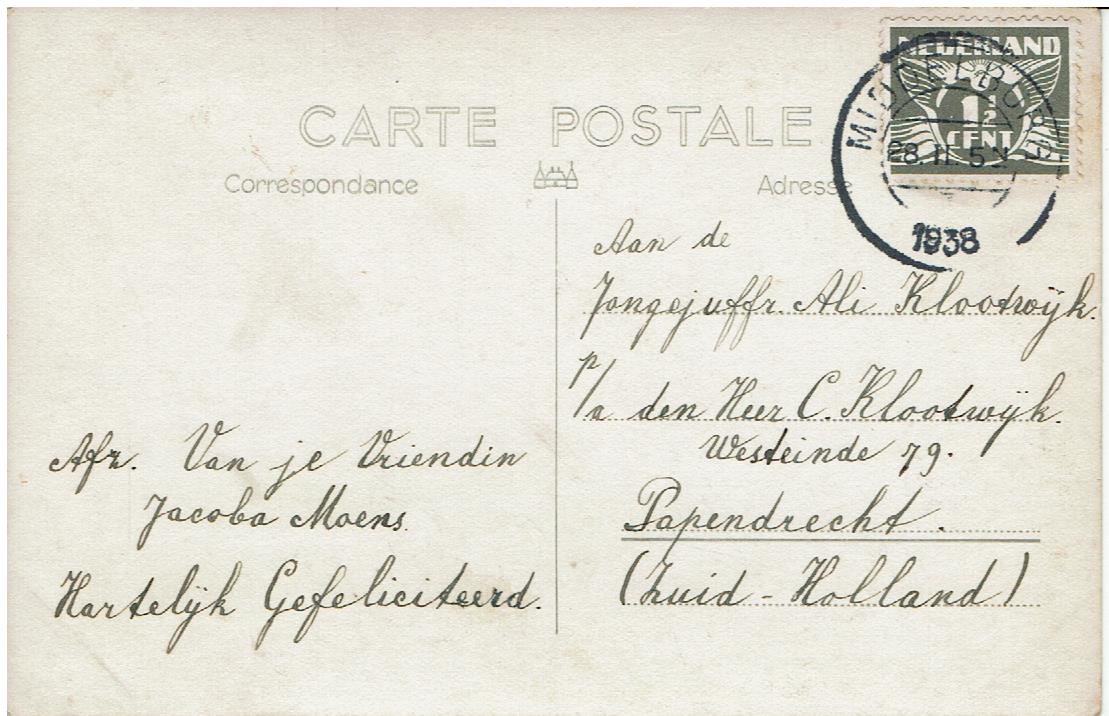 NEDERLAND
1½
CENT
MIDDELBURG
28.II.5N
1938
CARTE POSTALE
Correspondance
Adresse
Afz. Van je Vriendin
Jacoba Moens.
Hartelijk Gefeliciteerd.
Aan de
Jongejuffr. Ali Klootwijk.
p/a den Heer C. Klootwijk.
Westeinde 79.
Papendrecht.
(Zuid-Holland)